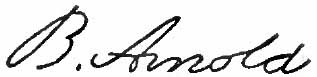 B. Arnold